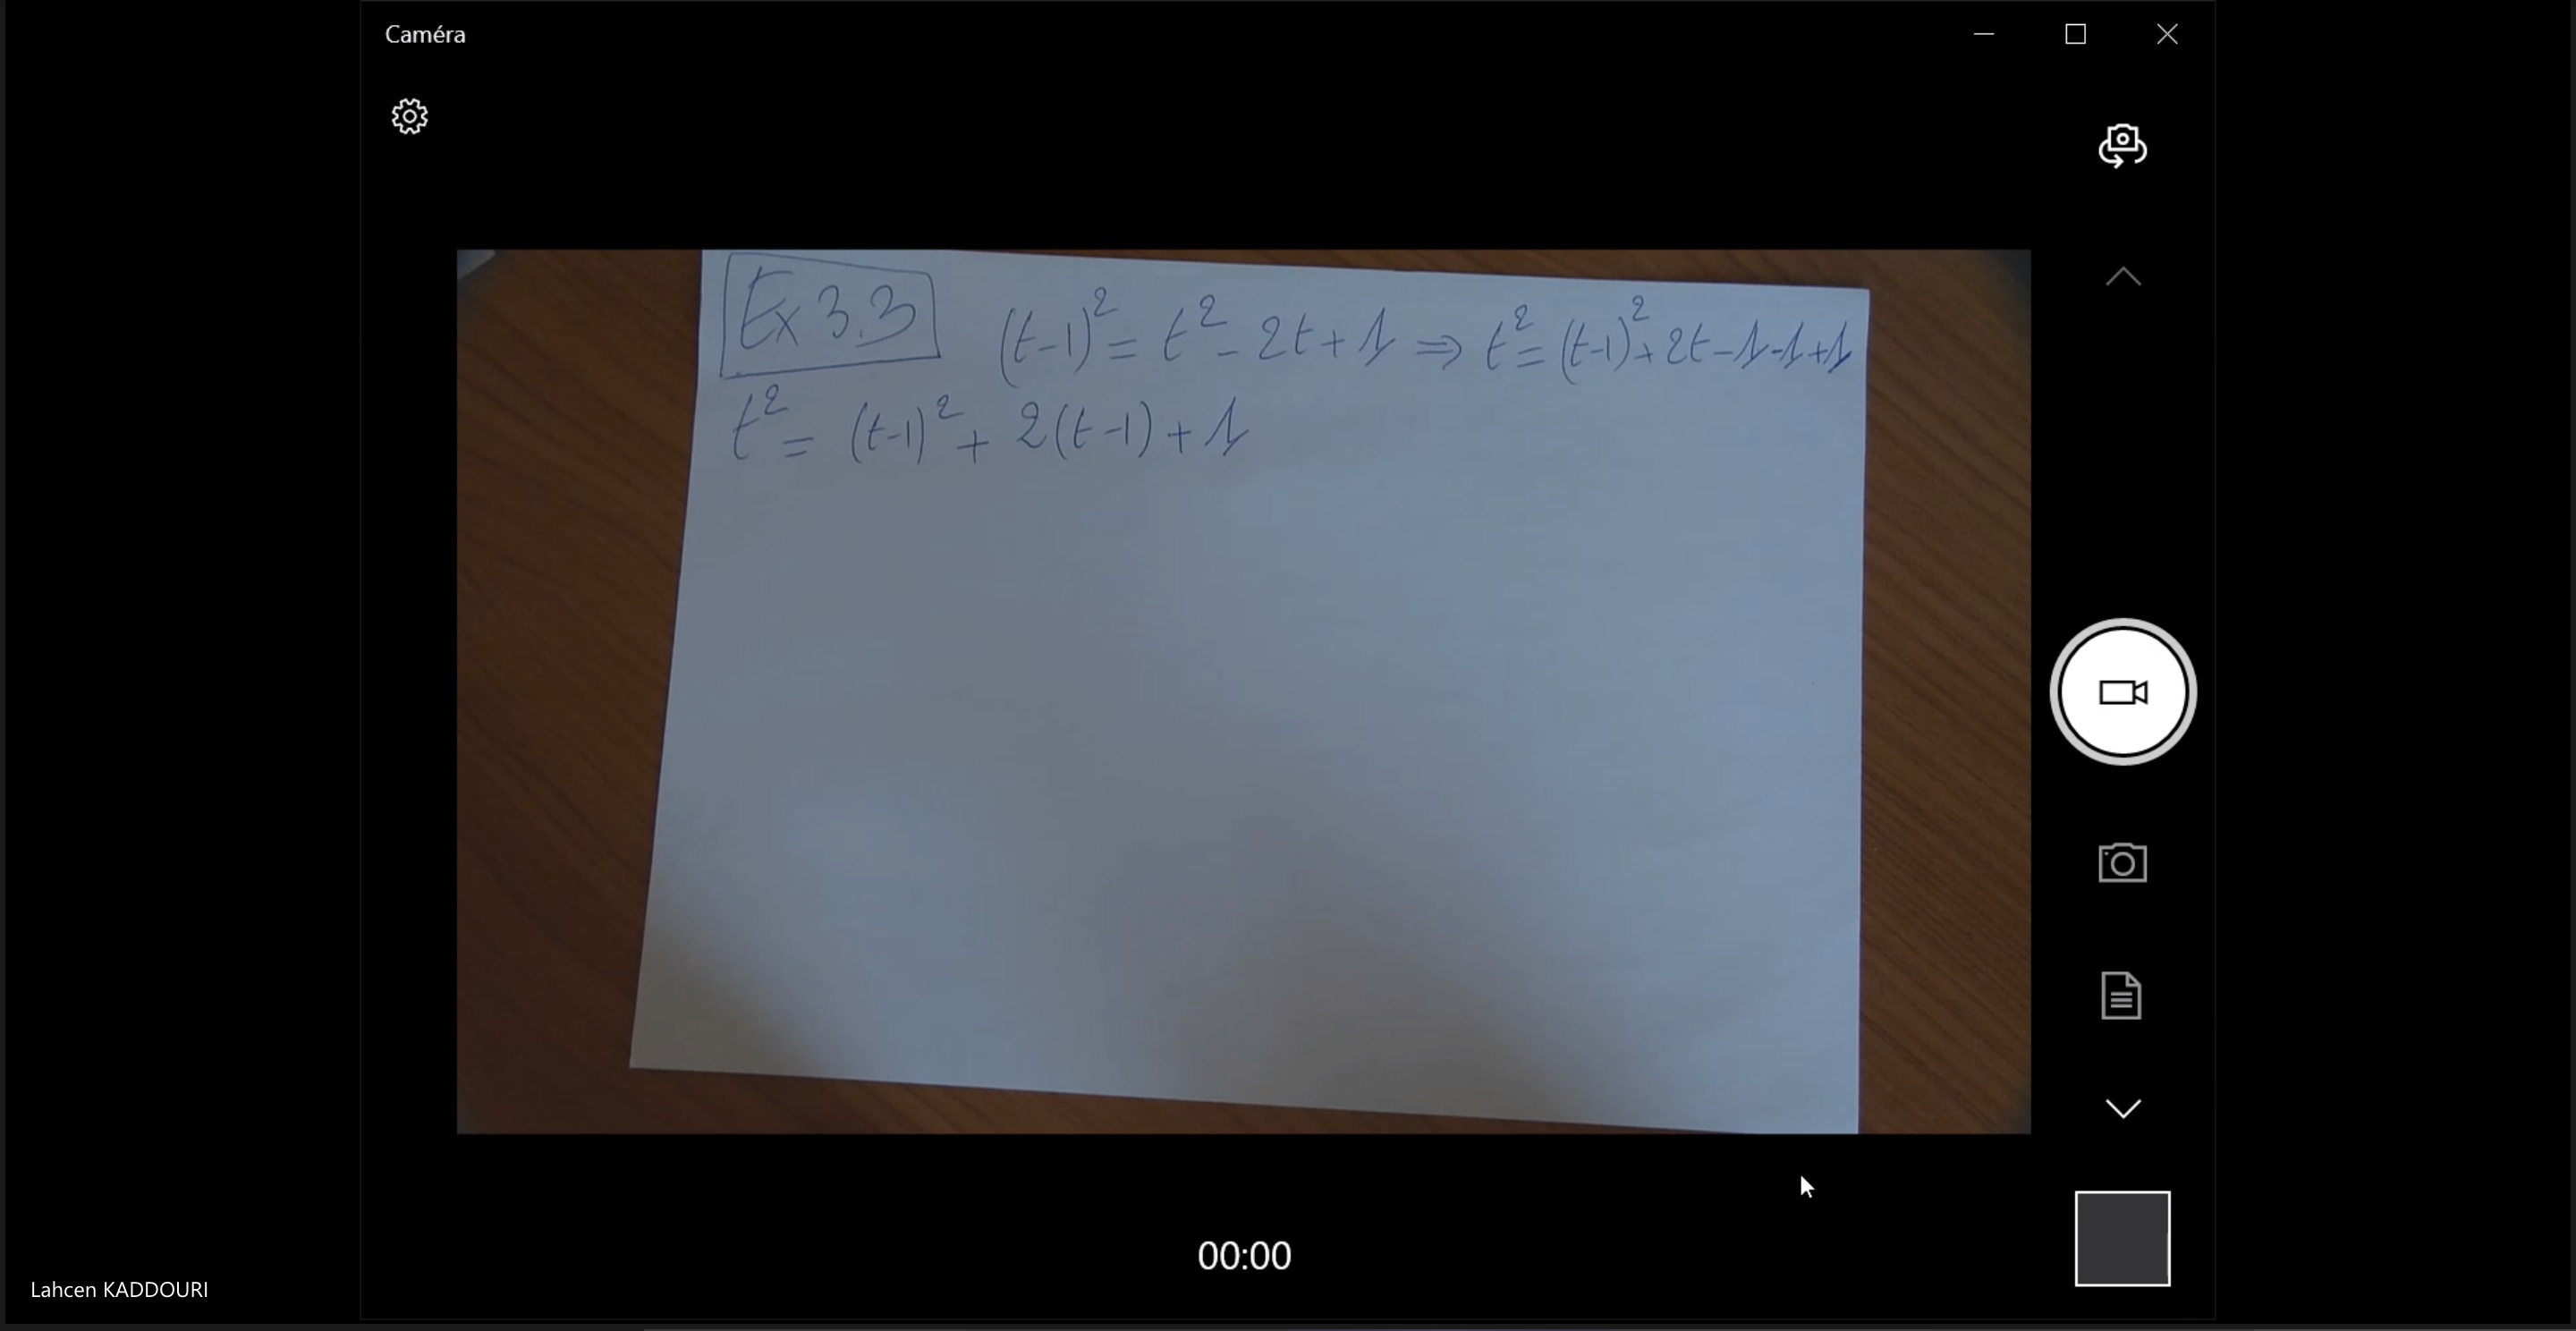 Caméra
Ex 3.3 (t-1)² = t² - 2t + 1 ⇒ t² = (t-1)² + 2t - 1 - 1 + 1
t² = (t-1)² + 2(t-1) + 1
00:00
Lahcen KADDOURI